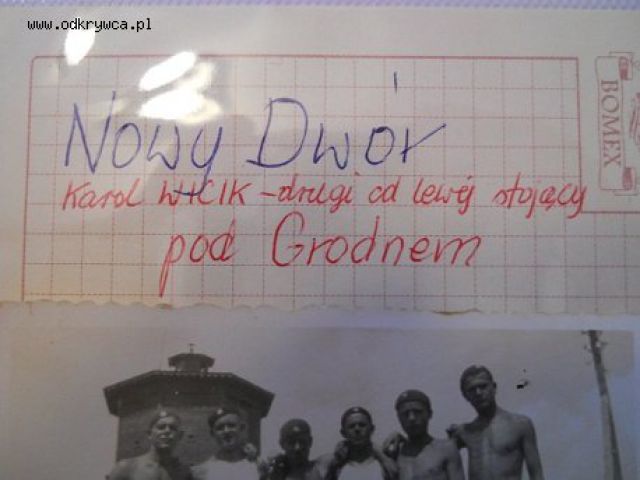 www.odkrywca.pl
BOMEX
Nowy Dwór
Karol WłCIK - drugi od lewéj stojący
pod Grodnem